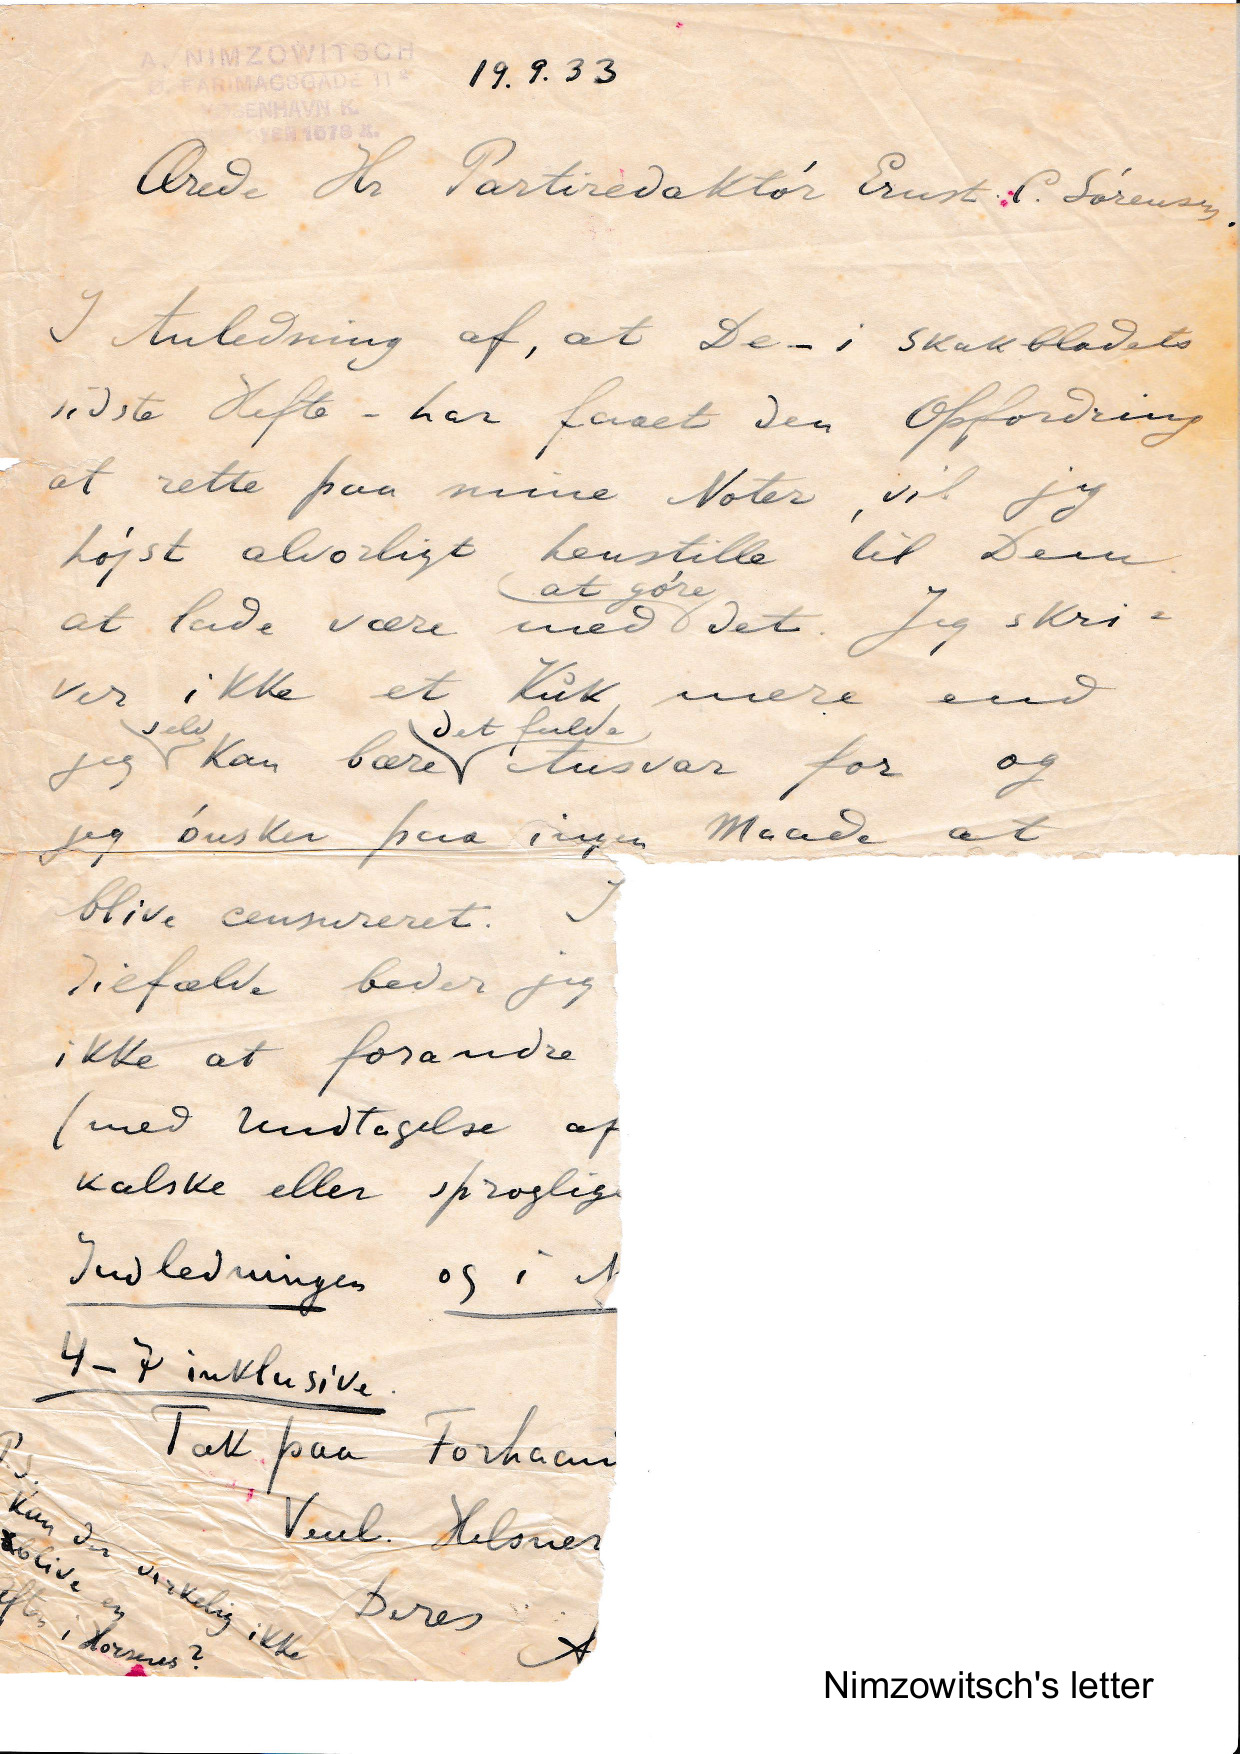 A. NIMZOWITSCH
Ø. FARIMAGSGADE 11
KØBENHAVN K.
1678 X.
19.9.33
Ærede Hr Partiredaktór Ernst P. Sórensen.
I Anledning af, at De - i Skakbladets
sidste Hefte - har faaet den Opfordring
at rette paa mine Noter, vil jeg
hójst alvorligt henstille til Dem
at góre
at lade være med det. Jeg skri=
ver ikke et Kuk mere end
selv det fulde
jeg kan bære Ansvar for og
jeg ónsker paa ingen Maade at
blive censureret. I
Tilfælde beder jeg
ikke at forandre
(med Undtagelse af
kalske eller sproglige
Indledningen og i N
4-7 inklusive.
Tak paa Forhaan
Venl. Hilsner
Deres A
P.S.
Kan der virkelig ikke
blive en
Aften i Horsens?
Nimzowitsch's letter